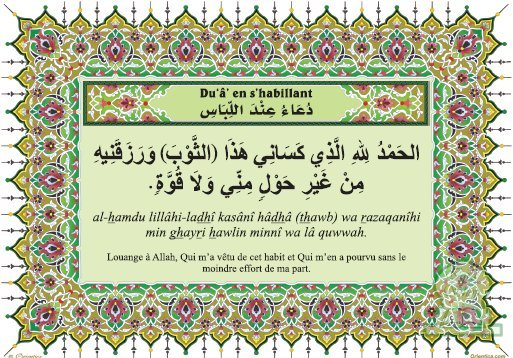 Du'â' en s'habillant
دُعَاءُ عِنْدَ اللِّبَاسِ
الحَمْدُ لِلهِ الَّذِي كَسَانِي هَذَا (الثَّوْبَ) وَرَزَقَنِيهِ
مِنْ غَيْرِ حَوْلٍ مِنِّي وَلَا قُوَّةٍ.
al-hamdu lillâhi-ladhî kasânî hâdhâ (thawb) wa razaqanîhi
min ghayri hawlin minnî wa lâ quwwah.
Louange à Allah, Qui m'a vêtu de cet habit et Qui m'en a pourvu sans le
moindre effort de ma part.
Orientica.com